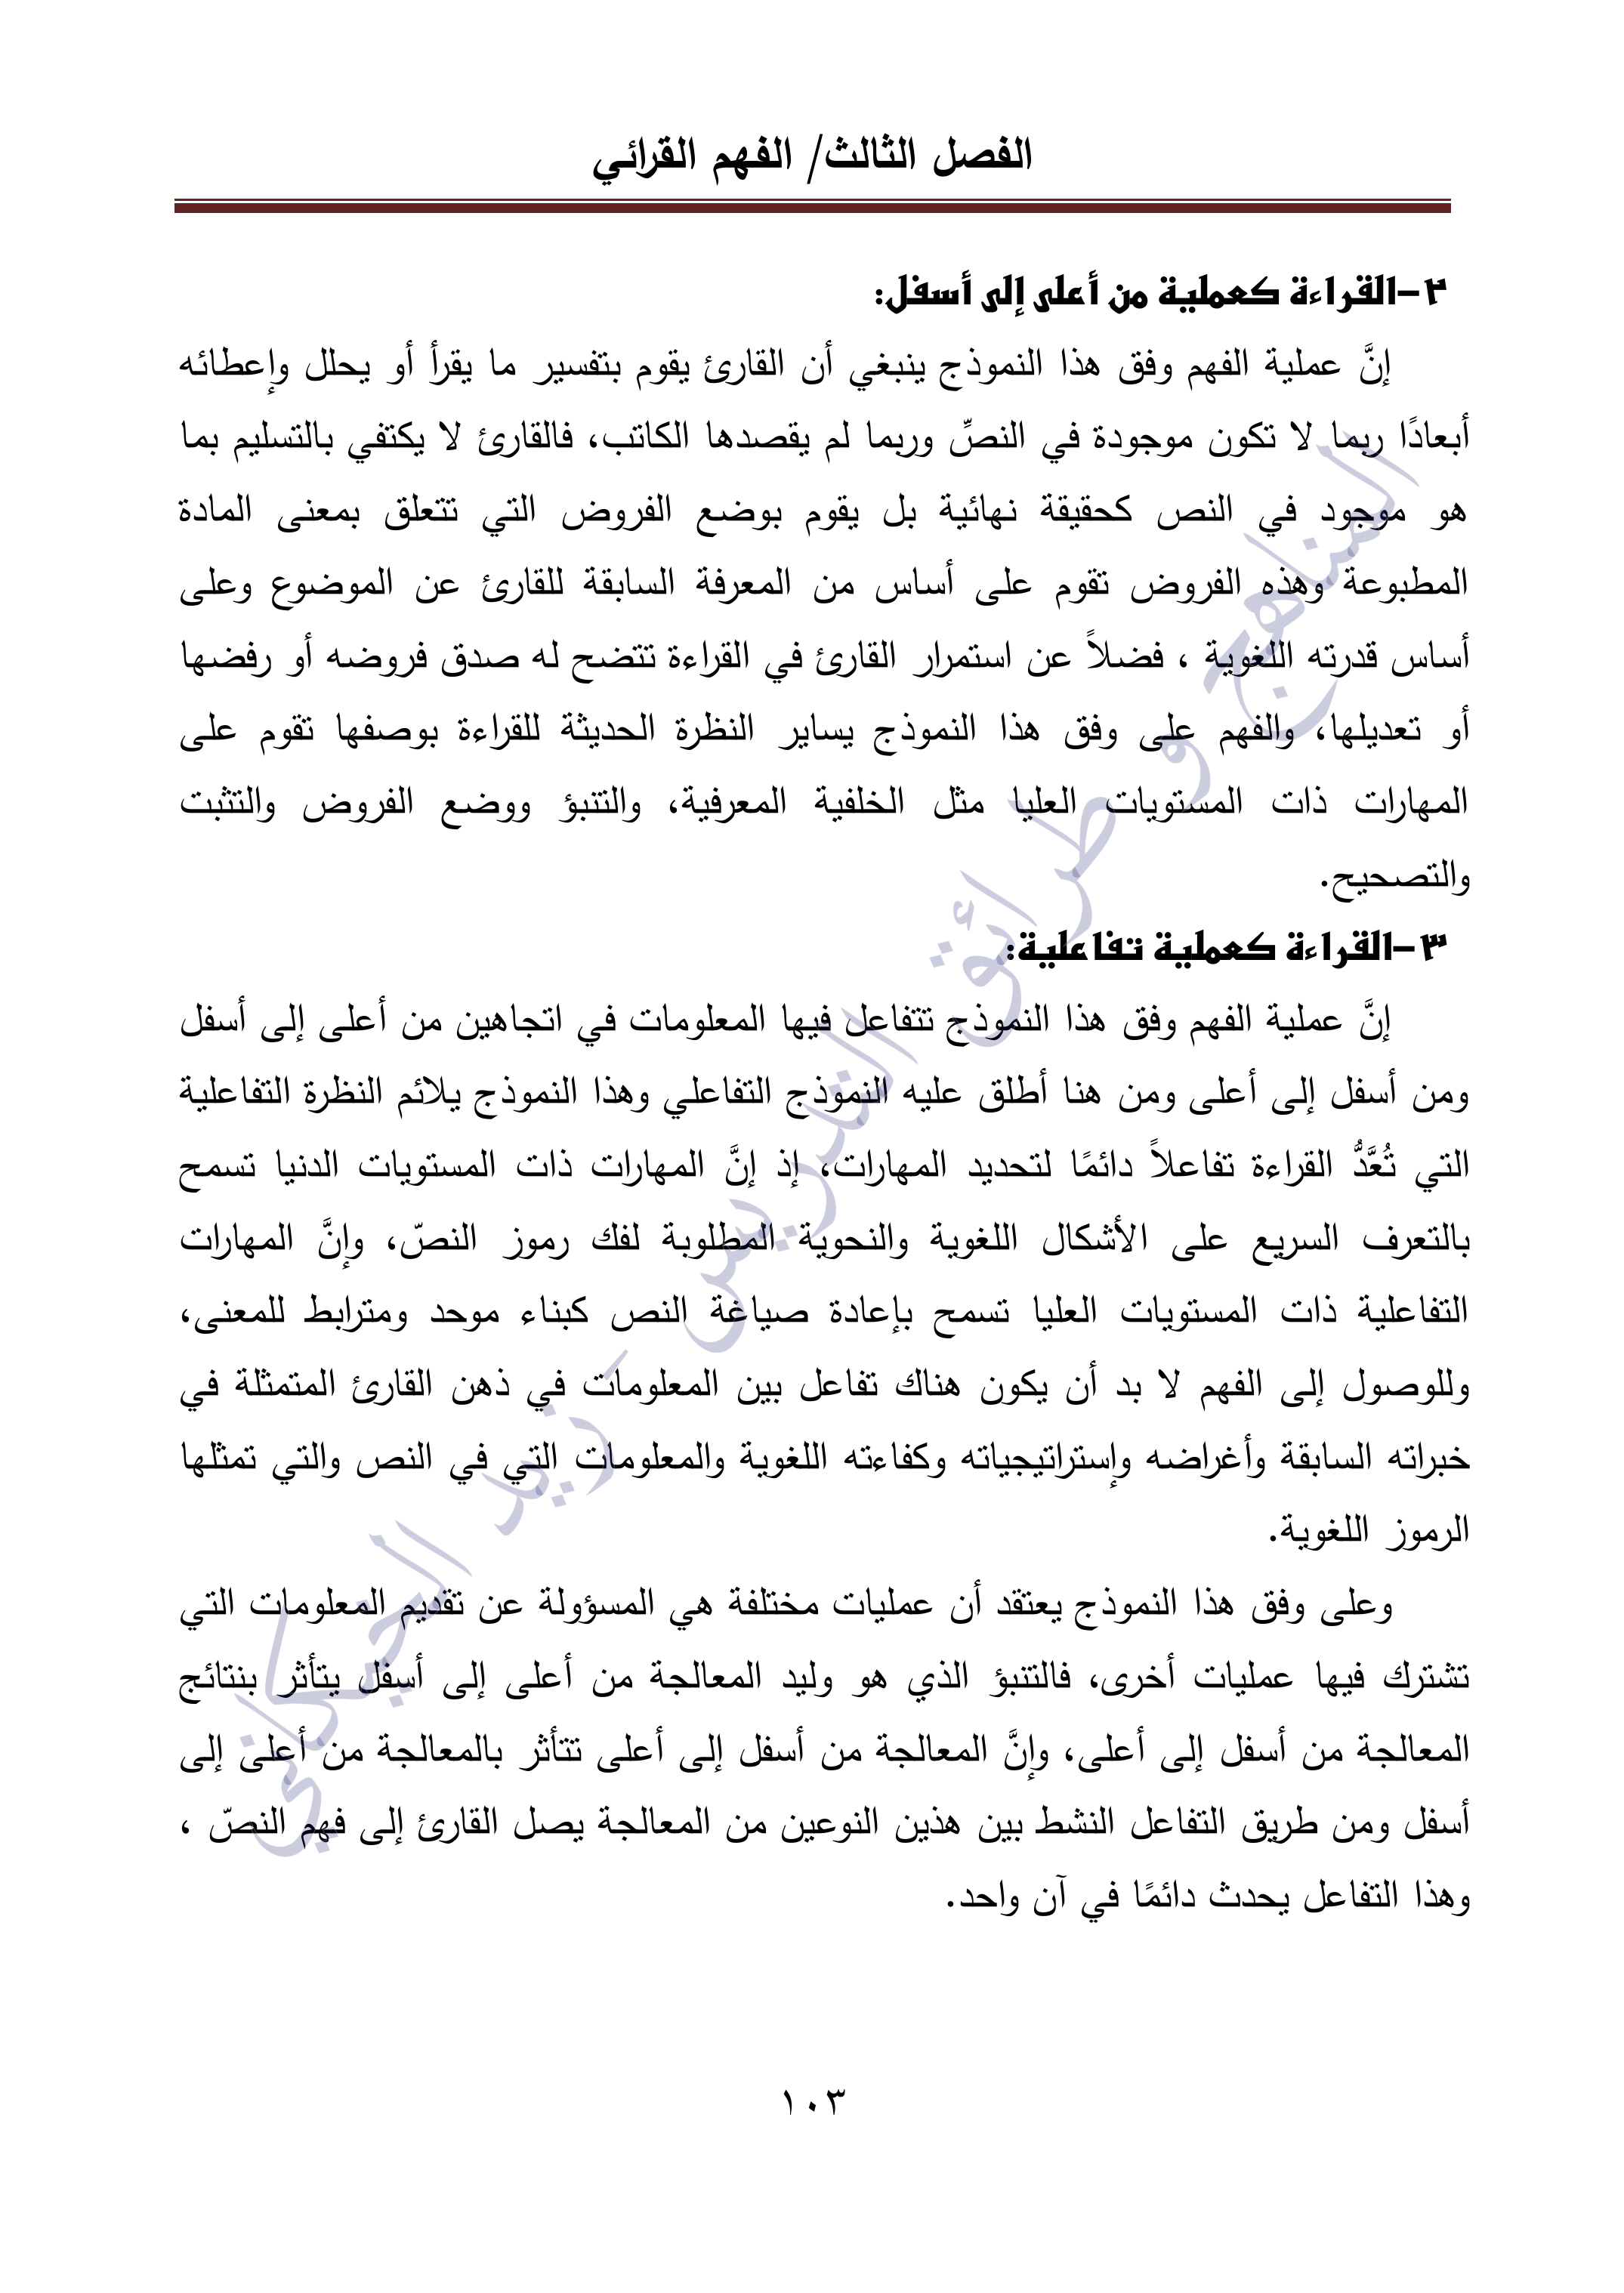 الفصل الثالث/ الفهم القرائي
٢-القراءة كعملية من أعلى إلى أسفل:
إنَّ عملية الفهم وفق هذا النموذج ينبغي أن القارئ يقوم بتفسير ما يقرأ أو يحلل وإعطائه
أبعادًا ربما لا تكون موجودة في النصِّ وربما لم يقصدها الكاتب، فالقارئ لا يكتفي بالتسليم بما
هو موجود في النص كحقيقة نهائية بل يقوم بوضع الفروض التي تتعلق بمعنى المادة
المطبوعة وهذه الفروض تقوم على أساس من المعرفة السابقة للقارئ عن الموضوع وعلى
أساس قدرته اللغوية ، فضلاً عن استمرار القارئ في القراءة تتضح له صدق فروضه أو رفضها
أو تعديلها، والفهم على وفق هذا النموذج يساير النظرة الحديثة للقراءة بوصفها تقوم على
المهارات ذات المستويات العليا مثل الخلفية المعرفية، والتنبؤ ووضع الفروض والتثبت
والتصحيح.
٣-القراءة كعملية تفاعلية:
إنَّ عملية الفهم وفق هذا النموذج تتفاعل فيها المعلومات في اتجاهين من أعلى إلى أسفل
ومن أسفل إلى أعلى ومن هنا أطلق عليه النموذج التفاعلي وهذا النموذج يلائم النظرة التفاعلية
التي تُعَّدُّ القراءة تفاعلاً دائمًا لتحديد المهارات، إذ إنَّ المهارات ذات المستويات الدنيا تسمح
بالتعرف السريع على الأشكال اللغوية والنحوية المطلوبة لفك رموز النصّ، وإنَّ المهارات
التفاعلية ذات المستويات العليا تسمح بإعادة صياغة النص كبناء موحد ومترابط للمعنى،
وللوصول إلى الفهم لا بد أن يكون هناك تفاعل بين المعلومات في ذهن القارئ المتمثلة في
خبراته السابقة وأغراضه وإستراتيجياته وكفاءته اللغوية والمعلومات التي في النص والتي تمثلها
الرموز اللغوية.
وعلى وفق هذا النموذج يعتقد أن عمليات مختلفة هي المسؤولة عن تقديم المعلومات التي
تشترك فيها عمليات أخرى، فالتنبؤ الذي هو وليد المعالجة من أعلى إلى أسفل يتأثر بنتائج
المعالجة من أسفل إلى أعلى، وإنَّ المعالجة من أسفل إلى أعلى تتأثر بالمعالجة من أعلى إلى
أسفل ومن طريق التفاعل النشط بين هذين النوعين من المعالجة يصل القارئ إلى فهم النصّ ،
وهذا التفاعل يحدث دائمًا في آن واحد.
المناهج و طرائق التدريس - زيد الخيكاني
١٠٣